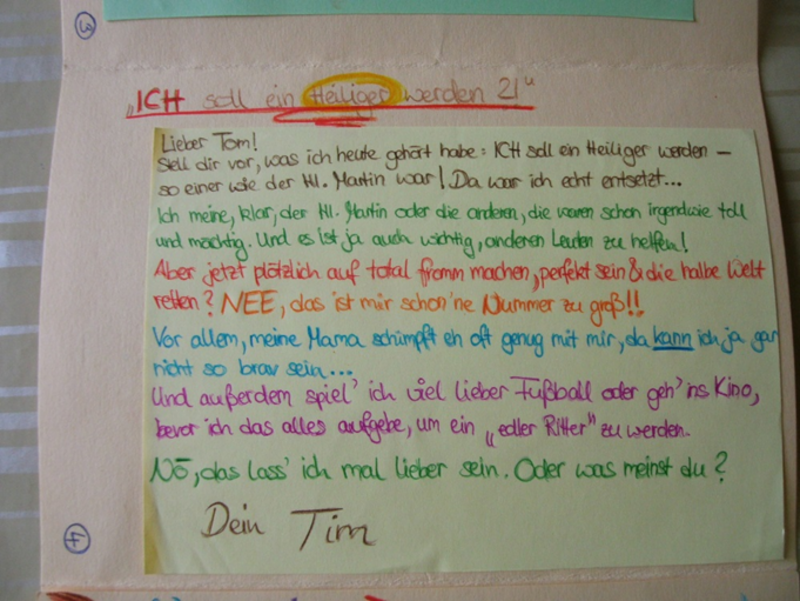 3
„ICH soll ein Heiliger werden ?!"
Lieber Tom!
Stell dir vor, was ich heute gehört habe: ICH soll ein Heiliger werden –
so einer wie der Hl. Martin war! Da war ich echt entsetzt...
Ich meine, klar, der Hl. Martin oder die anderen, die waren schon irgendwie toll
und mächtig. Und es ist ja auch wichtig, anderen Leuten zu helfen!
Aber jetzt plötzlich auf total fromm machen, perfekt sein & die halbe Welt
retten? NEE, das ist mir schon 'ne Nummer zu groß!!
Vor allem, meine Mama schimpft eh oft genug mit mir, da kann ich ja gar
nicht so brav sein...
Und außerdem spiel' ich viel lieber Fußball oder geh' ins Kino,
bevor ich das alles aufgebe, um ein „edler Ritter" zu werden.
Nö, das lass' ich mal lieber sein. Oder was meinst du?
Dein Tim